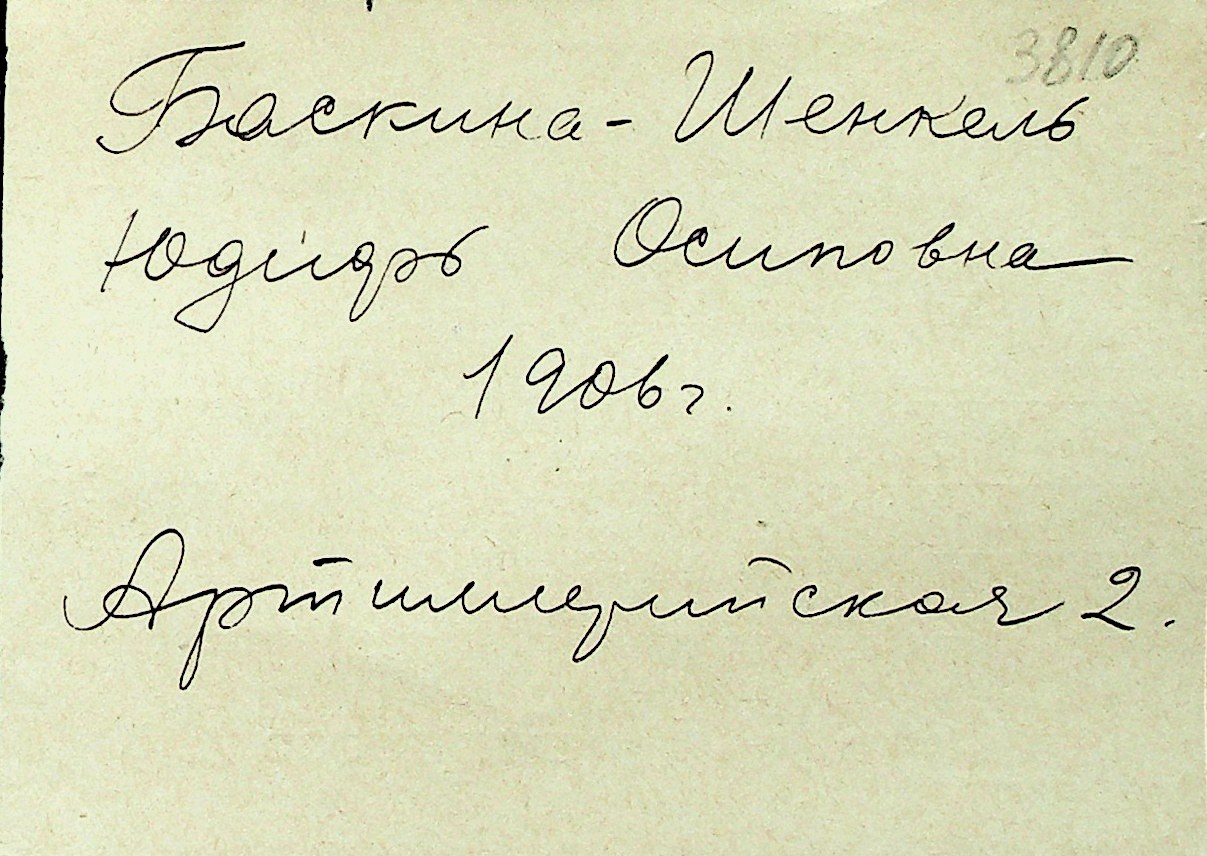 3810
Баскина - Шенкель
Юдифь Осиповна
1906 г.
Артиллерийская 2.